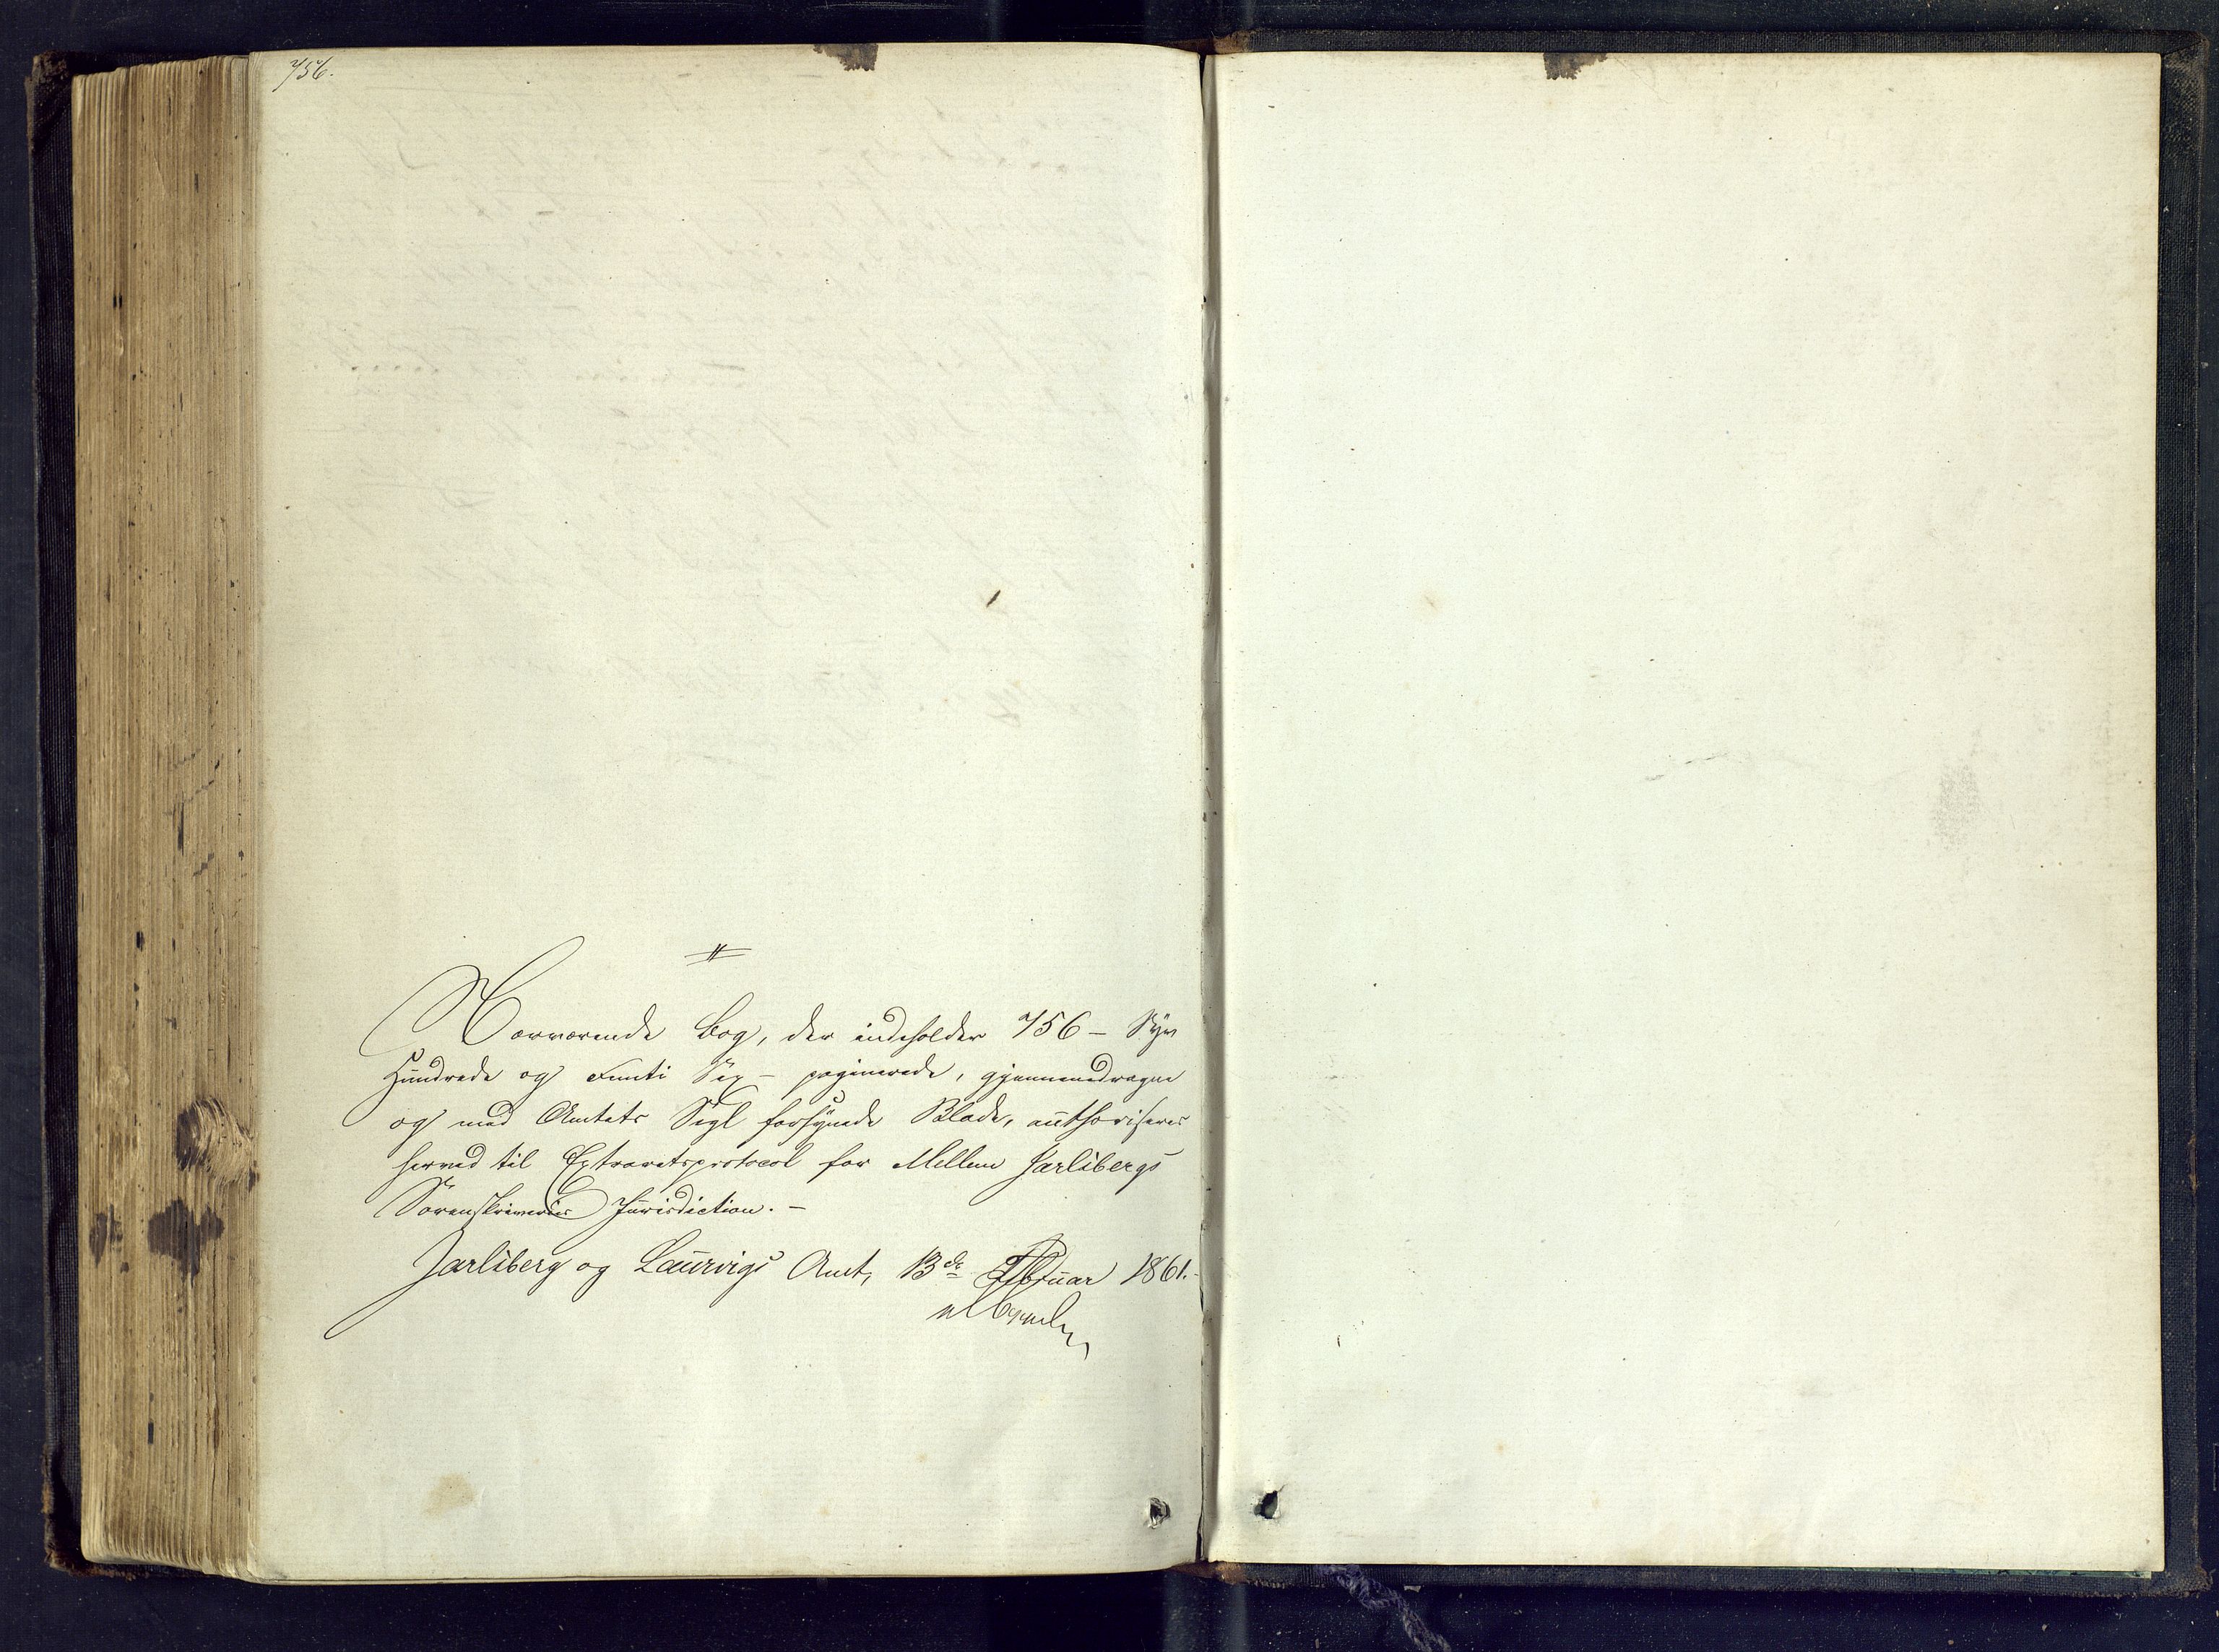 756.
Nærværende Bog, der indeholder 756 - Syv
Hundrede og Femti Sex - paginerede, gjennemdragne
og med Amtets Segl forsynede Blade, authoriseres
herved til Extraretsprotocol for Mellem Jarlsbergs
Sorenskriveries Jurisdiction. -
Jarlsberg og Laurvigs Amt, 13de Februar 1861.